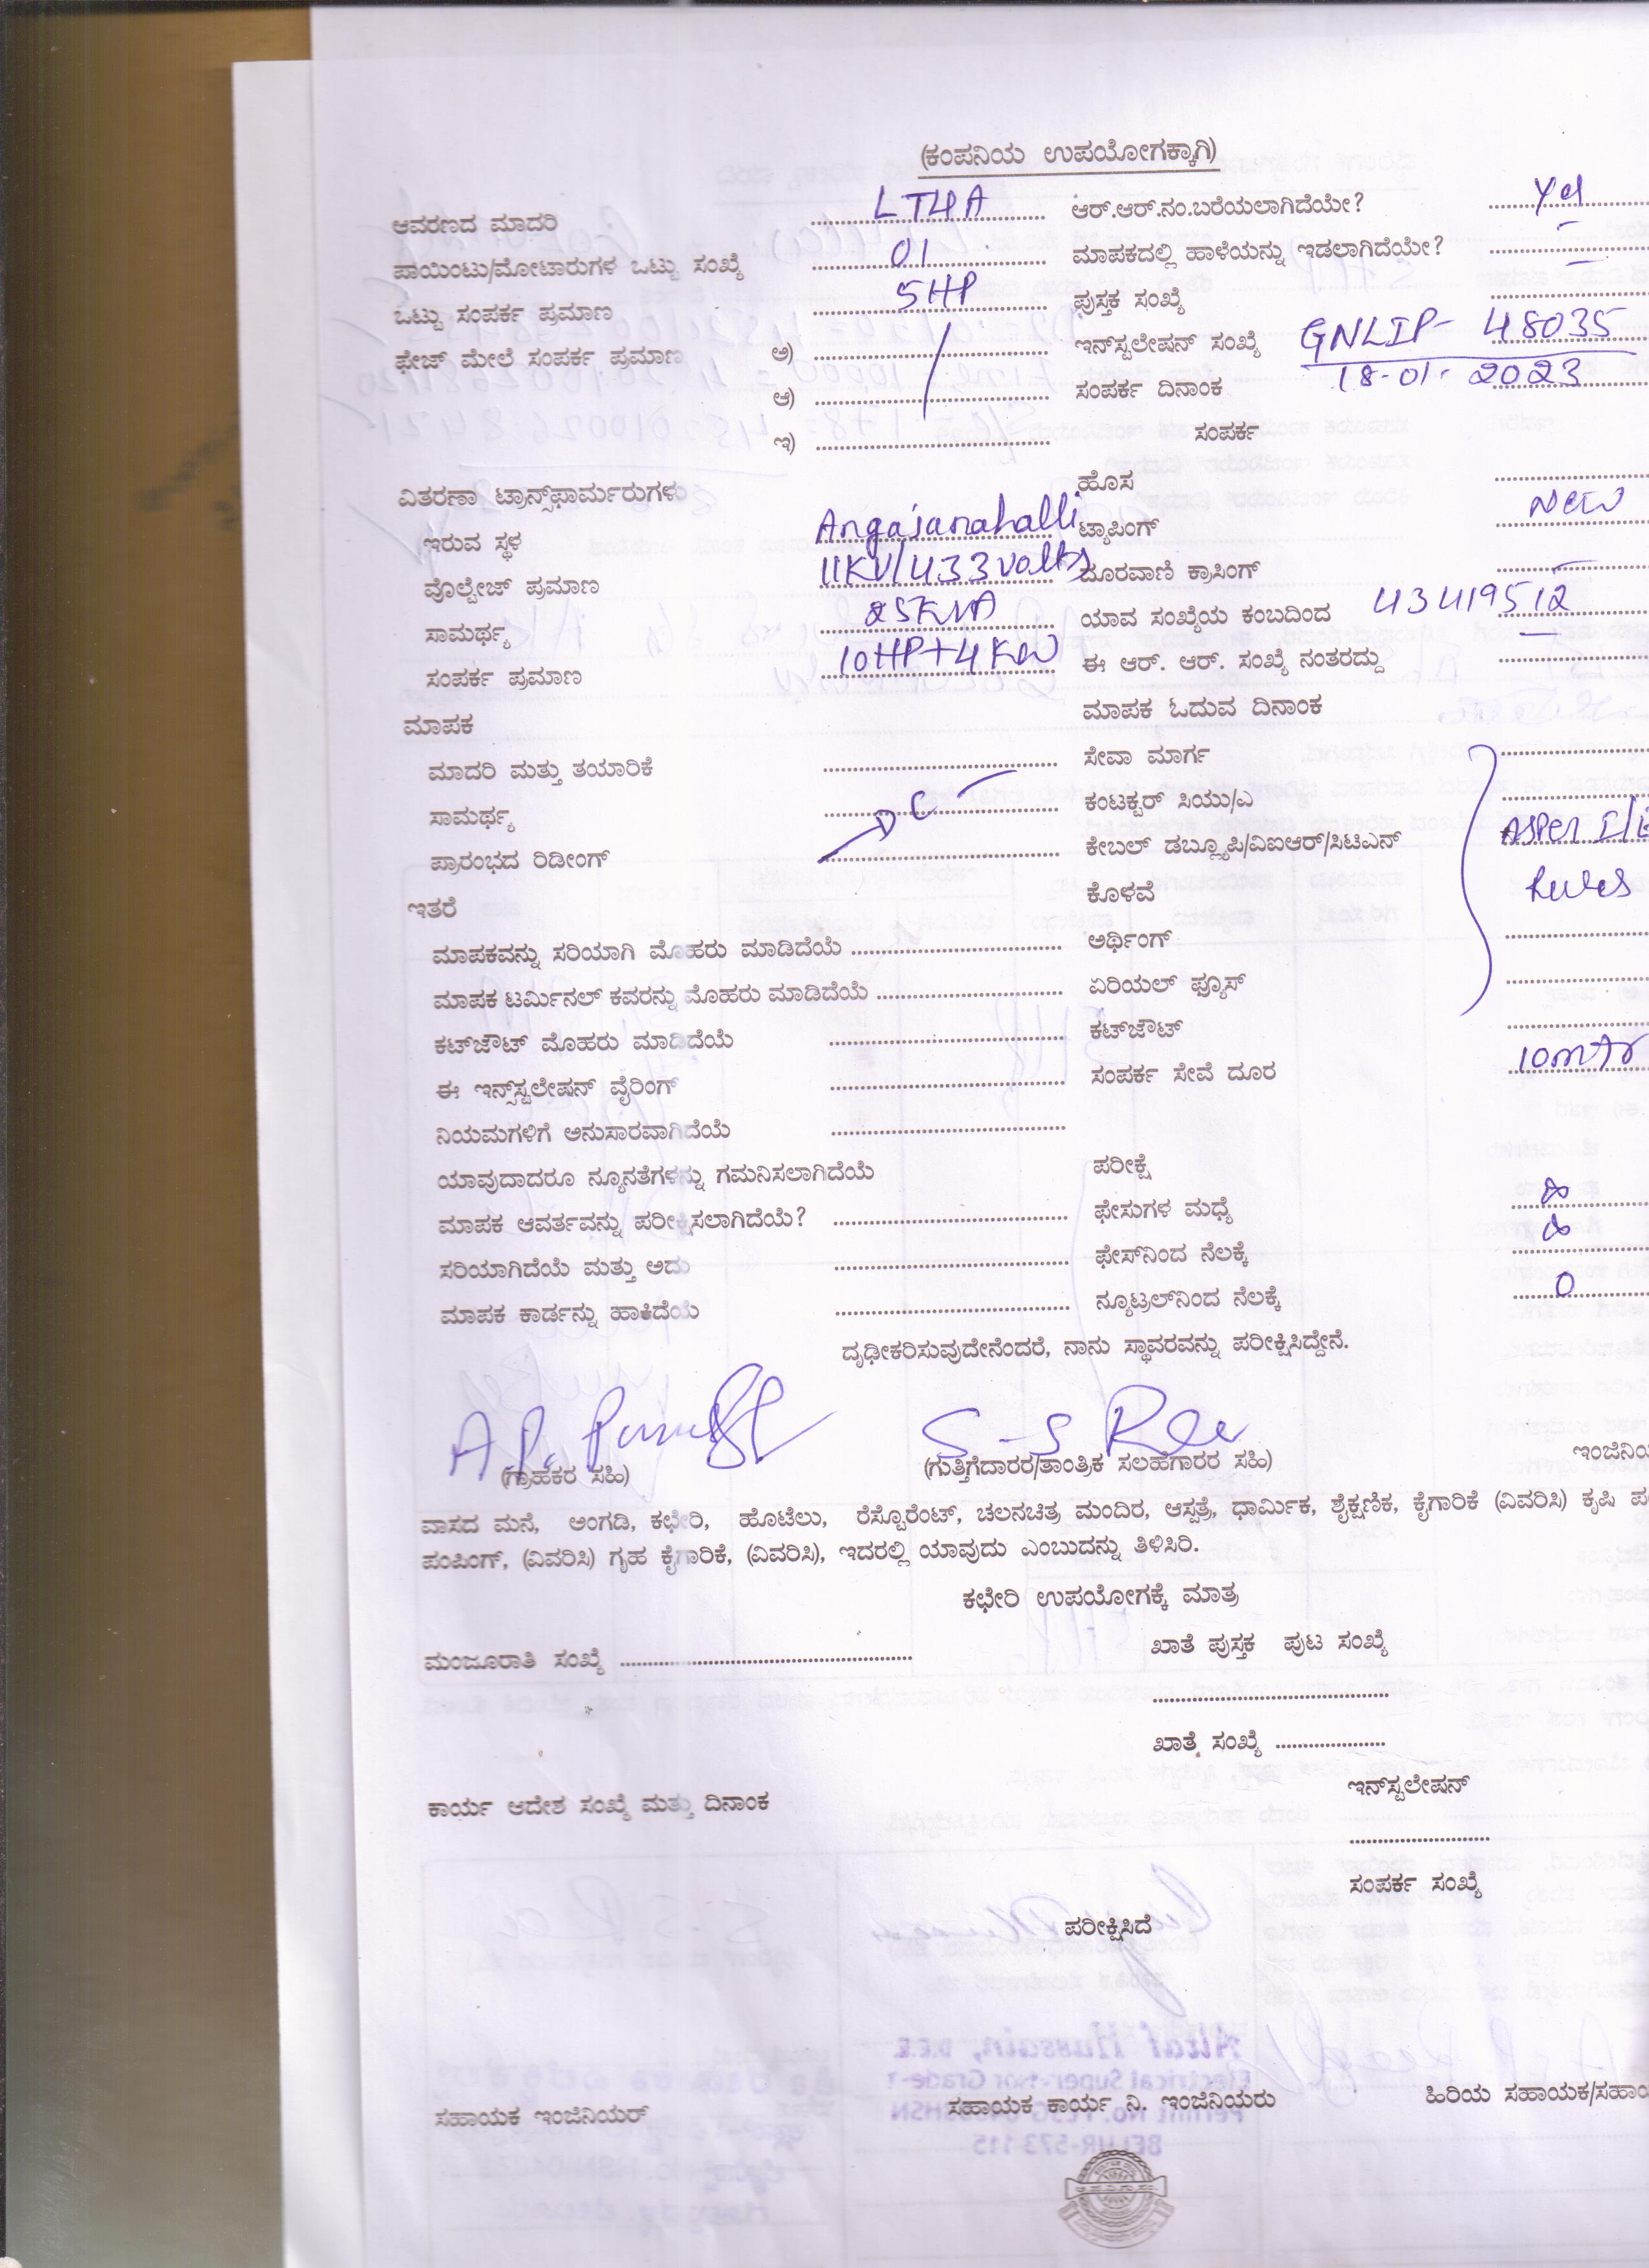 (ಕಂಪನಿಯ ಉಪಯೋಗಕ್ಕಾಗಿ)
ಆವರಣದ ಮಾದರಿ LT4A ಆರ್.ಆರ್.ನಂ.ಬರೆಯಲಾಗಿದೆಯೇ? Yes
ಪಾಯಿಂಟು/ಮೋಟಾರುಗಳ ಒಟ್ಟು ಸಂಖ್ಯೆ 01 ಮಾಪಕದಲ್ಲಿ ಹಾಳೆಯನ್ನು ಇಡಲಾಗಿದೆಯೇ? -
ಒಟ್ಟು ಸಂಪರ್ಕ ಪ್ರಮಾಣ 5HP ಪುಸ್ತಕ ಸಂಖ್ಯೆ -
ಫೇಜ್ ಮೇಲೆ ಸಂಪರ್ಕ ಪ್ರಮಾಣ ಅ) ಇನ್‌ಸ್ಟಲೇಷನ್ ಸಂಖ್ಯೆ GNLIP- 48035
ಆ) ಸಂಪರ್ಕ ದಿನಾಂಕ 18-01-2023
ಇ) ಸಂಪರ್ಕ
ವಿತರಣಾ ಟ್ರಾನ್ಸ್‌ಫಾರ್ಮರುಗಳು ಹೊಸ
ಇರುವ ಸ್ಥಳ Angajanahalli ಟ್ಯಾಪಿಂಗ್ New
ವೊಲ್ಟೇಜ್ ಪ್ರಮಾಣ 11KV/433volts ದೂರವಾಣಿ ಕ್ರಾಸಿಂಗ್ -
ಸಾಮರ್ಥ್ಯ 25KVA ಯಾವ ಸಂಖ್ಯೆಯ ಕಂಬದಿಂದ 43419512
ಸಂಪರ್ಕ ಪ್ರಮಾಣ 10HP+4KW ಈ ಆರ್. ಆರ್. ಸಂಖ್ಯೆ ನಂತರದ್ದು -
ಮಾಪಕ ಮಾಪಕ ಓದುವ ದಿನಾಂಕ
ಮಾದರಿ ಮತ್ತು ತಯಾರಿಕೆ ಸೇವಾ ಮಾರ್ಗ
ಸಾಮರ್ಥ್ಯ DC ಕಂಟಕ್ಟರ್ ಸಿಯು/ಎ
ಪ್ರಾರಂಭದ ರಿಡೀಂಗ್ ಕೇಬಲ್ ಡಬ್ಲ್ಯೂಪಿ/ವಿಐಆರ್/ಸಿಟಿಎನ್ Asper
ಇತರೆ ಕೊಳವೆ Rules
ಮಾಪಕವನ್ನು ಸರಿಯಾಗಿ ಮೊಹರು ಮಾಡಿದೆಯೆ ಅರ್ಥಿಂಗ್
ಮಾಪಕ ಟರ್ಮಿನಲ್ ಕವರನ್ನು ಮೊಹರು ಮಾಡಿದೆಯೆ ಏರಿಯಲ್ ಫ್ಯೂಸ್
ಕಟ್‌ಜೌಟ್ ಮೊಹರು ಮಾಡಿದೆಯೆ ಕಟ್‌ಜೌಟ್
ಈ ಇನ್ಸ್‌ಸ್ಟಲೇಷನ್ ವೈರಿಂಗ್ ಸಂಪರ್ಕ ಸೇವೆ ದೂರ 10mtr
ನಿಯಮಗಳಿಗೆ ಅನುಸಾರವಾಗಿದೆಯೆ
ಯಾವುದಾದರೂ ನ್ಯೂನತೆಗಳನ್ನು ಗಮನಿಸಲಾಗಿದೆಯೆ ಪರೀಕ್ಷೆ
ಮಾಪಕ ಆವರ್ತವನ್ನು ಪರೀಕ್ಷಿಸಲಾಗಿದೆಯೆ? ಫೇಸುಗಳ ಮಧ್ಯೆ ∞
ಸರಿಯಾಗಿದೆಯೆ ಮತ್ತು ಅದು ಫೇಸ್‌ನಿಂದ ನೆಲಕ್ಕೆ ∞
ಮಾಪಕ ಕಾರ್ಡನ್ನು ಹಾಕಿದೆಯೆ ನ್ಯೂಟ್ರಲ್‌ನಿಂದ ನೆಲಕ್ಕೆ 0
ದೃಢೀಕರಿಸುವುದೇನೆಂದರೆ, ನಾನು ಸ್ಥಾವರವನ್ನು ಪರೀಕ್ಷಿಸಿದ್ದೇನೆ.
(ಗ್ರಾಹಕರ ಸಹಿ) (ಗುತ್ತಿಗೆದಾರರ/ತಾಂತ್ರಿಕ ಸಲಹೆಗಾರರ ಸಹಿ)
ವಾಸದ ಮನೆ, ಅಂಗಡಿ, ಕಛೇರಿ, ಹೊಟೆಲು, ರೆಸ್ಟೊರೆಂಟ್, ಚಲನಚಿತ್ರ ಮಂದಿರ, ಆಸ್ಪತ್ರೆ, ಧಾರ್ಮಿಕ, ಶೈಕ್ಷಣಿಕ, ಕೈಗಾರಿಕೆ (ವಿವರಿಸಿ) ಕೃಷಿ
ಪಂಪಿಂಗ್, (ವಿವರಿಸಿ) ಗೃಹ ಕೈಗಾರಿಕೆ, (ವಿವರಿಸಿ), ಇದರಲ್ಲಿ ಯಾವುದು ಎಂಬುದನ್ನು ತಿಳಿಸಿರಿ.
ಕಛೇರಿ ಉಪಯೋಗಕ್ಕೆ ಮಾತ್ರ
ಮಂಜೂರಾತಿ ಸಂಖ್ಯೆ ಖಾತೆ ಪುಸ್ತಕ ಪುಟ ಸಂಖ್ಯೆ
ಖಾತೆ ಸಂಖ್ಯೆ
ಕಾರ್ಯ ಆದೇಶ ಸಂಖ್ಯೆ ಮತ್ತು ದಿನಾಂಕ ಇನ್‌ಸ್ಟಲೇಷನ್
ಸಂಪರ್ಕ ಸಂಖ್ಯೆ
ಪರೀಕ್ಷಿಸಿದೆ
ಸಹಾಯಕ ಇಂಜಿನಿಯರ್ ಸಹಾಯಕ ಕಾರ್ಯ ನಿ. ಇಂಜಿನಿಯರು ಹಿರಿಯ ಸಹಾಯಕ/